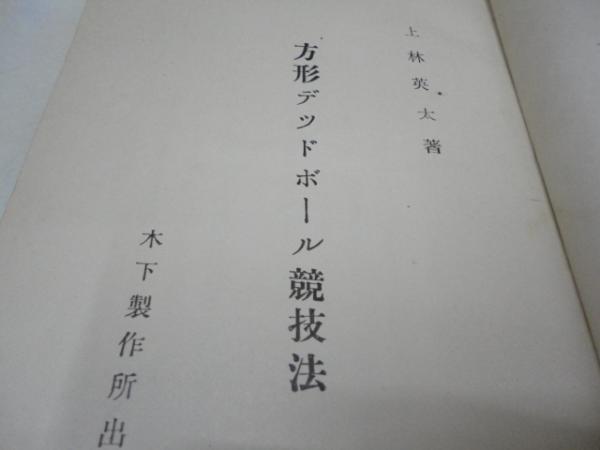 上林英太著
方形デツドボール競技法
木下製作所出